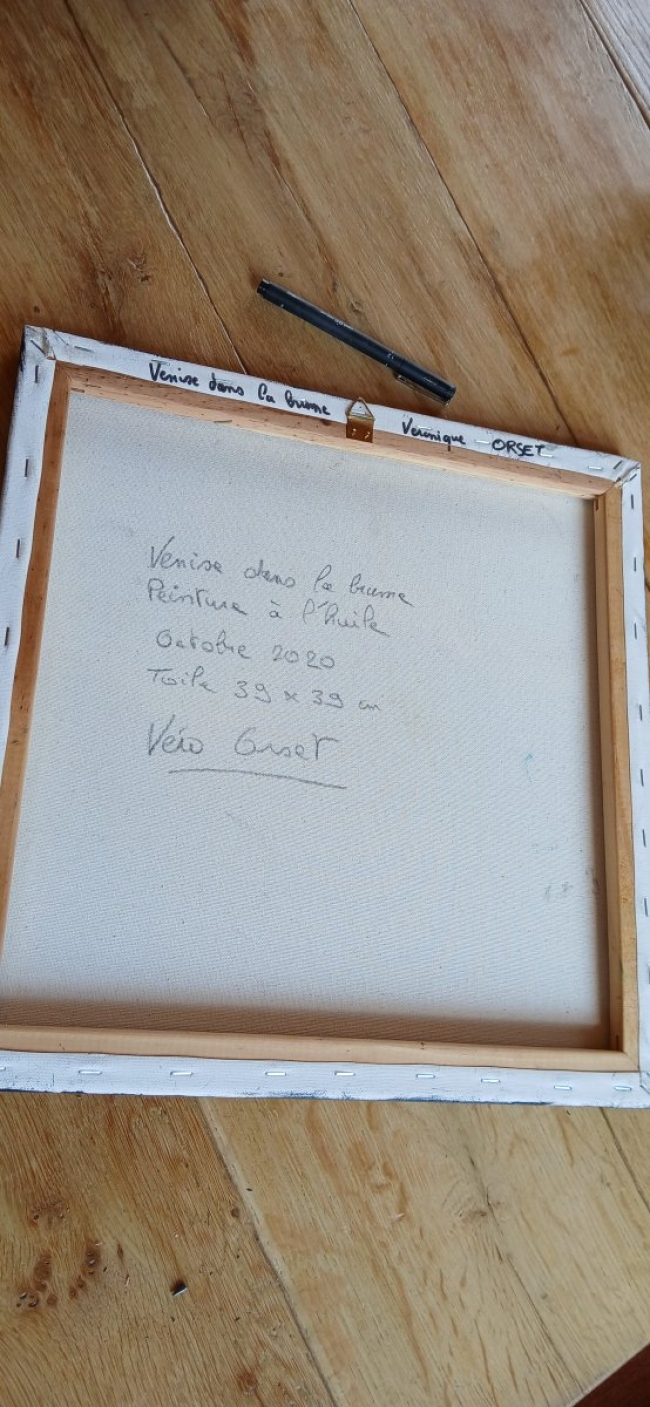 Venise dans la brume Veronique ORSET
Venise dans la brume
Peinture à l'huile
Octobre 2020
Toile 39 x 39 cm
Véro Orset